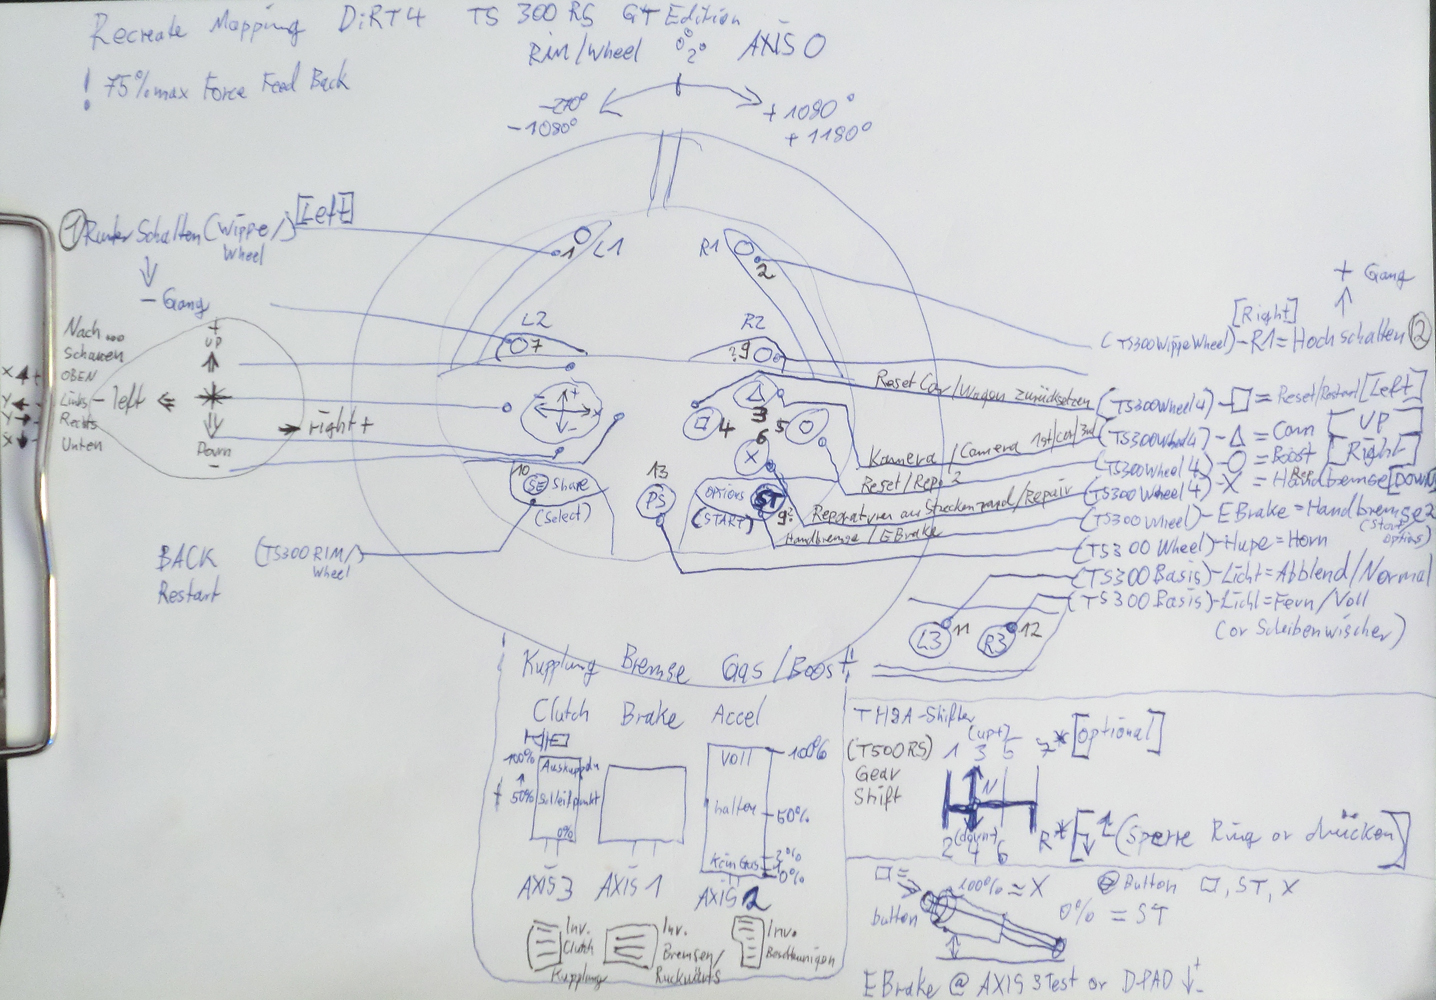 Recreate Mapping DiRT4 TS 300 RS GT Edition
Rim/Wheel AXIS 0
! 75% max Force Feed Back
-270°
-1080°
+1080°
+1180°
① Runter Schalten (Wippe/Wheel) [Left]
↓
- Gang
L1
1
R1
2
L2
7
R2
?9
+ Gang
↑
[Right]
(TS300 Wippe Wheel) - R1 = Hochschalten ②
Nach ...
Schauen
OBEN
Links
Rechts
Unten
+
UP
- left
right +
Down
-
X
Y
Y
X
Reset Car/Wagen zurücksetzen
(TS300 Wheel 4) - □ = Reset/Restart [Left]
Kamera/Camera 1st/cor/3rd
(TS300 Wheel 4) - △ = Cam [UP]
Reset/Repo 2
(TS300 Wheel 4) - ○ = Boost [Right]
Reparaturen am Streckenrand/Repair
(TS300 Wheel 4) - X = Handbremse [Down]
Handbremse/EBrake
(TS300 Wheel) - EBrake = Handbremse 2
(Start/Options)
(TS300 Wheel) - Hupe = Horn
(TS300 Basis) - Licht = Abblend/Normal
(TS300 Basis) - Licht = Fern/Voll
(or Scheibenwischer)
△
3
□ 4
5 ○
6
X
10
SE Share
(Select)
13
PS
OPTIONS
(START)
ST
9?
BACK
Restart
(TS300 RIM/Wheel)
L3 11
R3 12
Kupplung Bremse Gas/Boost
Clutch Brake Accel
100%
Auskuppeln
+ 50%
Schleifpunkt
0%
Voll
100%
halten
50%
Kein Gas
2%
0%
AXIS 3 AXIS 1 AXIS 2
Inv.
Clutch
Kupplung
Inv.
Bremsen/
Rückwärts
Inv.
Beschleunigen
TH8A-Shifter
(T500RS)
Gear
Shift
(up+)
1 3 5 7* [optional]
N
(down)
2 4 6 R* [(Sperre Ring or drücken)]
□ =
button
100% = X
Button □, ST, X
0% = ST
EBrake @ AXIS 3 Test or DPAD ↓ + -